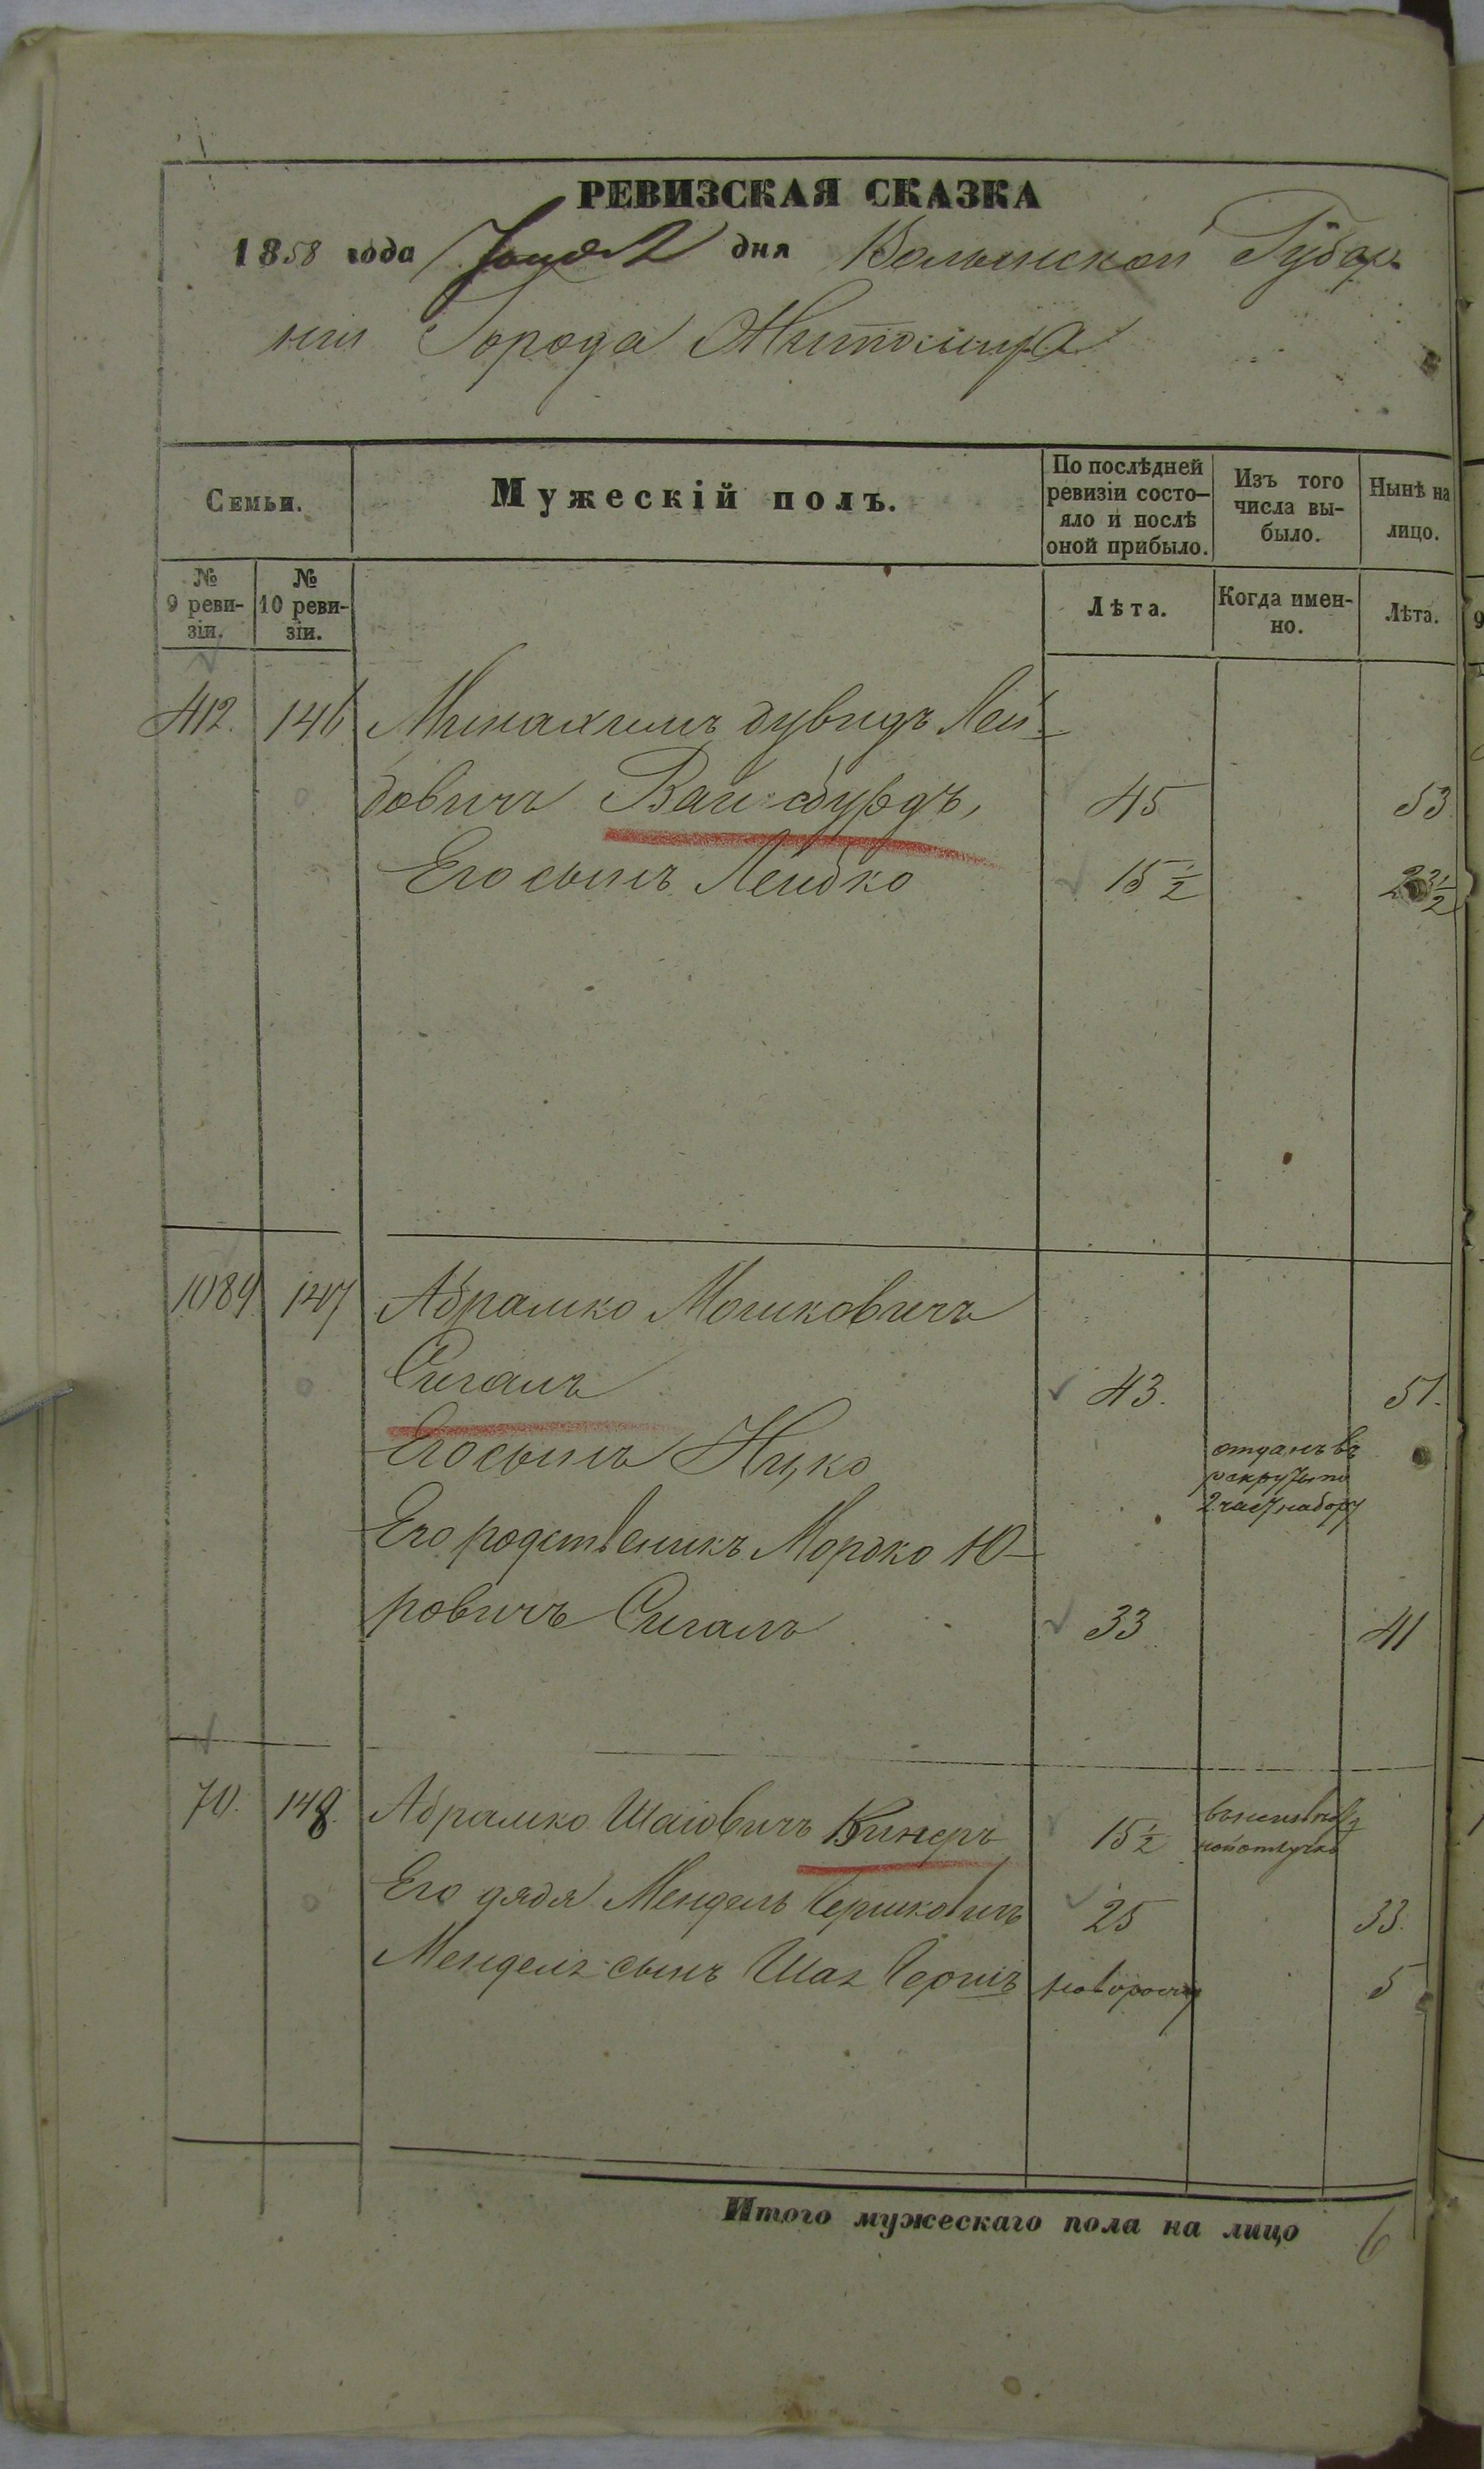 РЕВИЗСКАЯ СКАЗКА
1858 года дня Волынской Губер
ніи Города Житомира
Семьи.
Мужескій полъ.
По послѣдней ревизіи состо-
яло и послѣ оной прибыло.
Изъ того числа вы-
было.
Нынѣ на лицо.
№ 9 реви-
зіи.
№ 10 реви-
зіи.
Лѣта.
Когда имен-
но.
Лѣта.
412. 146 Минахимъ дувидъ Лей-
бовичъ Вайсбурдъ, 45 53
Его сынъ Лейбко 15 1/2 23 1/2
1089 147 Абрамко Мошковичъ
Сигалъ 43. 51.
Его сынъ Ицко отданъ въ рекруты по 2 част набору
Его родственикъ Мордко Ю-
ровичъ Сигалъ 33 41
70. 148. Абрамко Шаіовичъ Винеръ 15 1/2
Его дядя Мендель Гершковичъ 25 33.
Менделя сынъ Шая Гершъ 5
Итого мужескаго пола на лицо 6